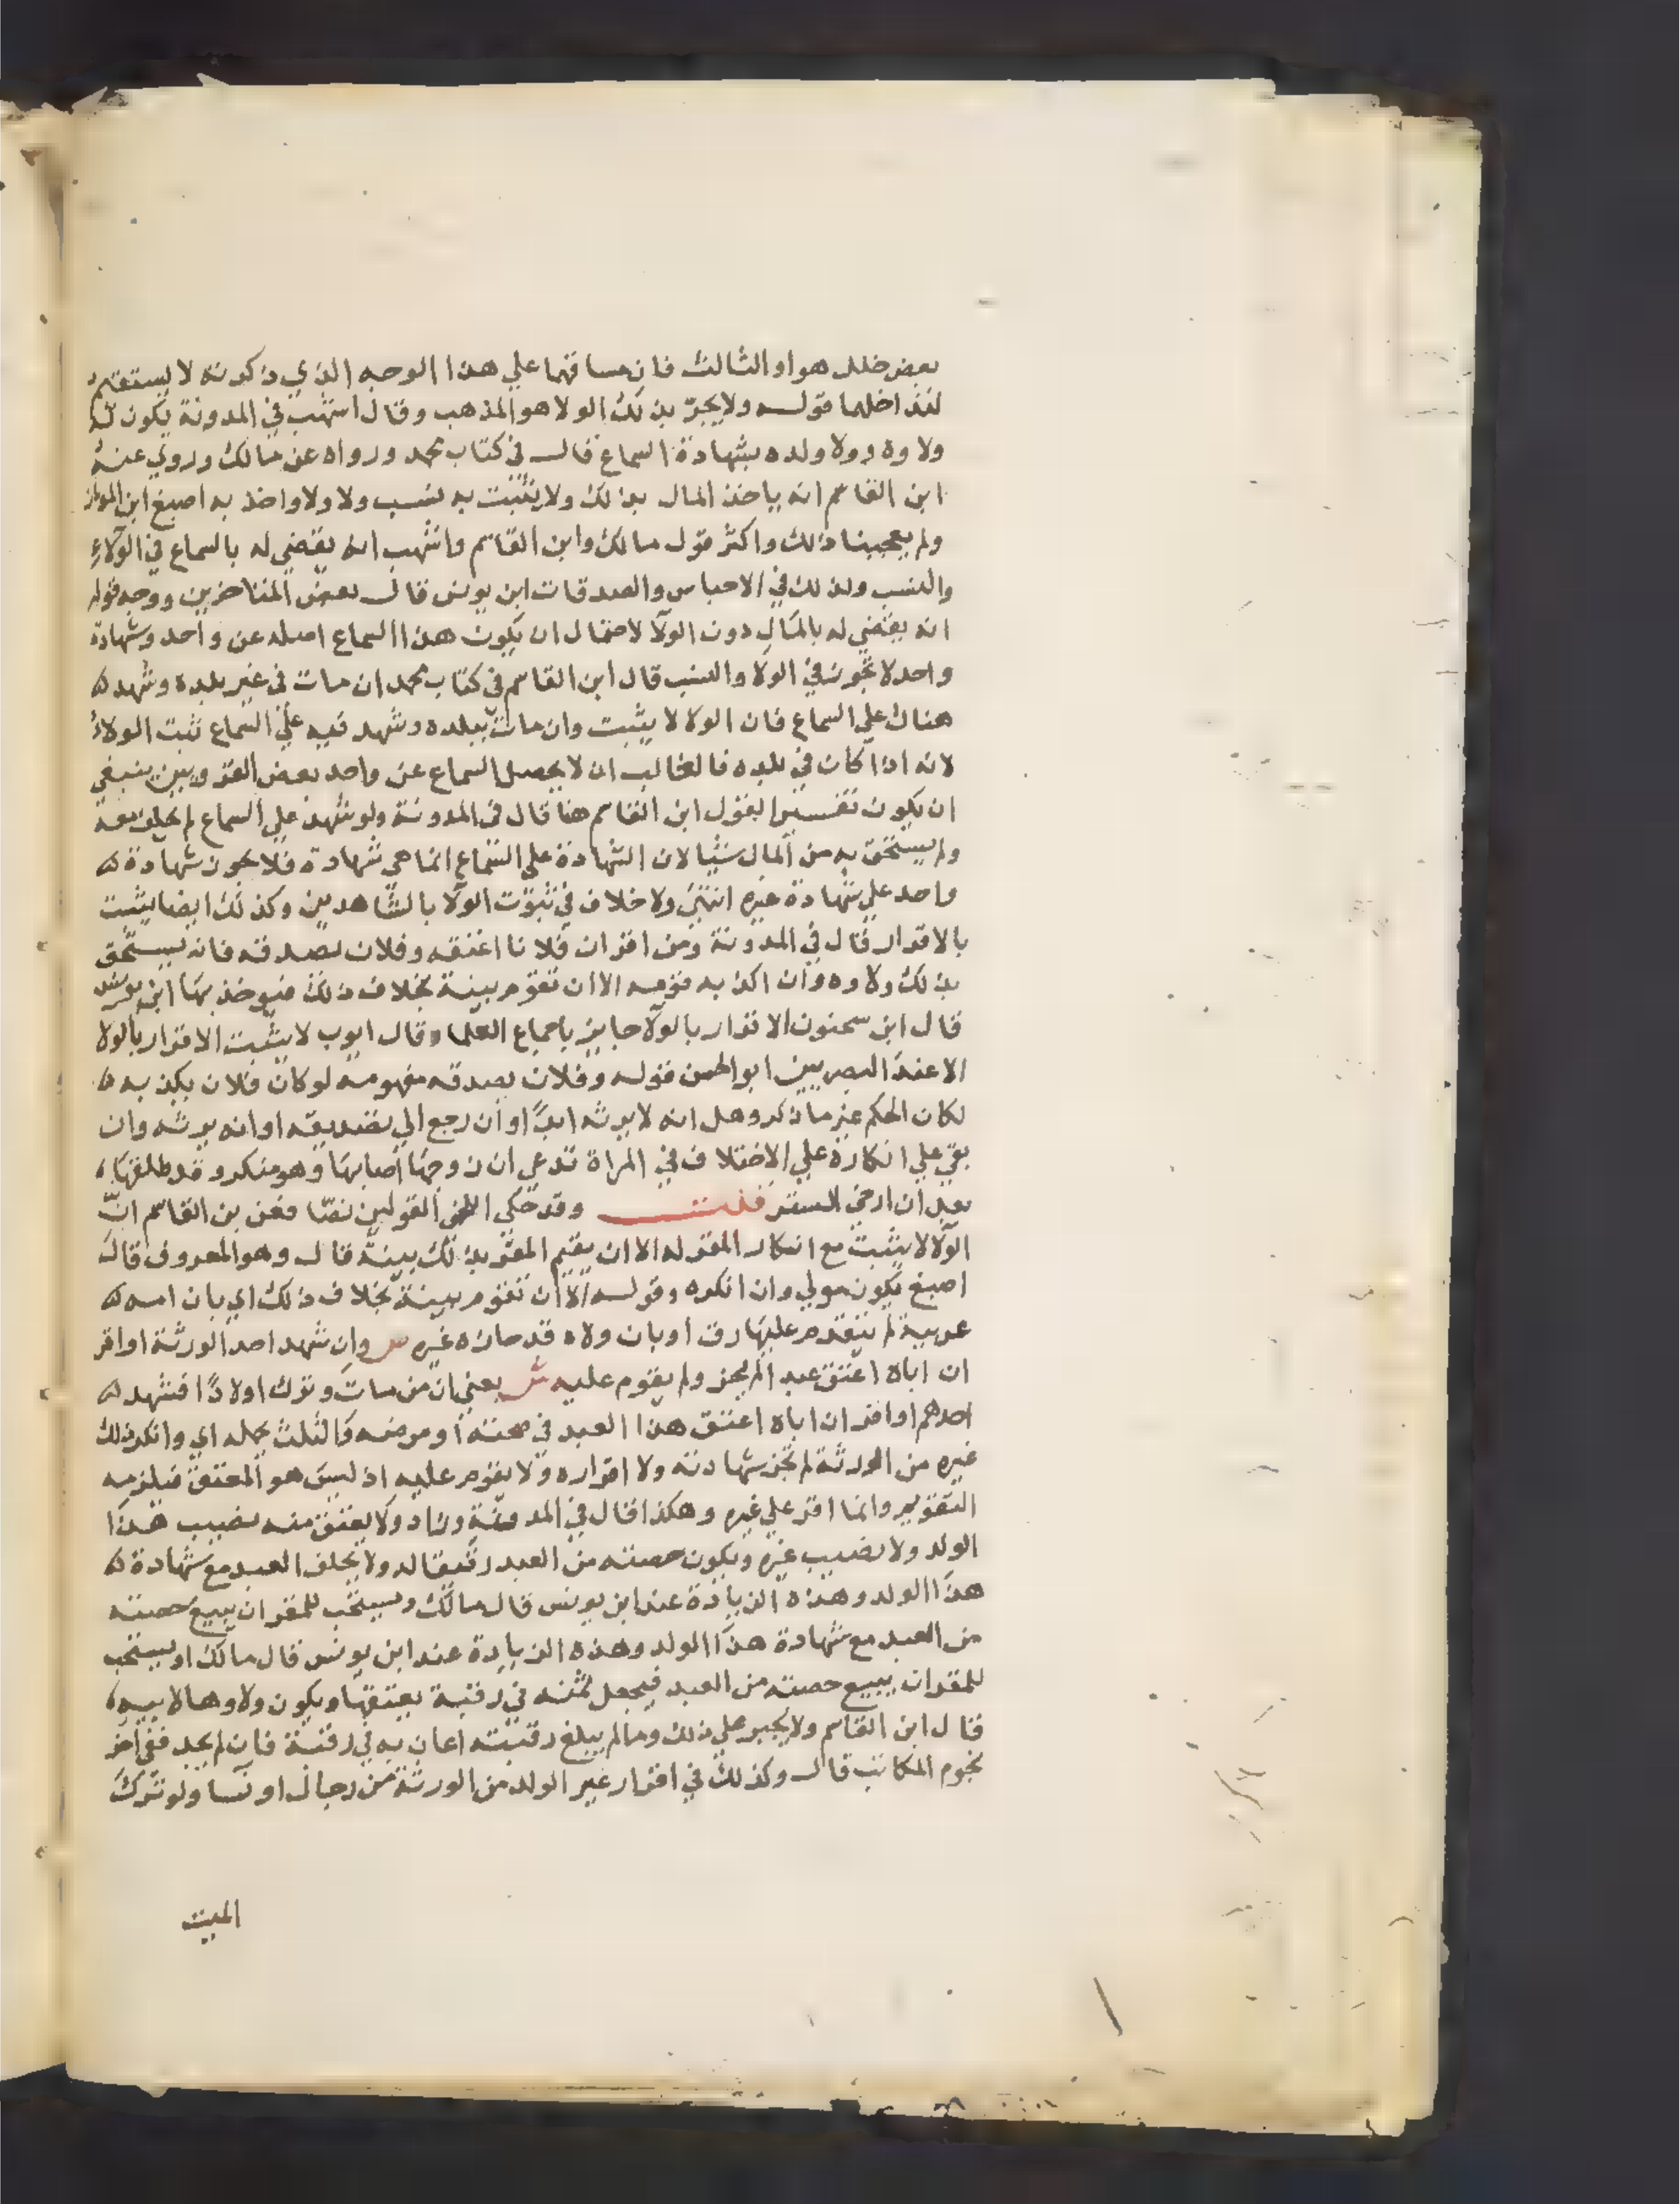 بعض خلل هو او الثالث فان مساقهما علي هذا الوجه الذي ذكرته لا يستقيم
لتداخلهما قوله ولا يجر بذلك الولا هو المذهب وقال اشهب في المدونة يكون له
ولاوه وولا ولده بشهادة السماع قال في كتاب محمد ورواه عن مالك وروي عنه
ابن القاسم انه ياخذ المال بذلك ولا يثبت به نسب ولا ولا واخذ به اصبغ ابن المواز
ولم يعجبنا ذلك واكثر قول مالك وابن القاسم واشهب انه يقضي له بالسماع في الولاء
والنسب وكذلك في الاحباس والصدقات ابن يونس قال بعض المتاخرين ووجه قوله
انه يقضي له بالمال دون الولا لاحتمال ان يكون هذا السماع اصله عن واحد وشهادة
واحد لا تجوز في الولا والنسب قال ابن القاسم في كتاب محمد ان مات في غير بلده وشهد
هناك علي السماع فان الولا لا يثبت وان مات ببلده وشهد فيه علي السماع ثبت الولاء
لانه اذا كان في بلده فالغالب ان لا يحصل السماع عن واحد بعض القرويين ينبغي
ان يكون تفسيرا لقول ابن القاسم هنا قال في المدونة ولو شهد علي السماع لم يحلف معه
ولم يستحق به من المال شيا لان الشهادة علي السماع انما هي شهادة فلا تجوز شهادة
واحد علي شهادة غيره انتهي ولا خلاف في ثبوت الولا بالشاهدين وكذلك ايضا يثبت
بالاقرار قال في المدونة ومن اقر ان فلانا اعتقه وفلان يصدقه فانه يستحق
بذلك ولاوه وان اكذبه قومه الا ان تقوم بينة بخلاف ذلك فيوخذ بها ابن يونس
قال ابن سحنون الاقرار بالولا جايز باجماع العلما وقال ايوب لا يثبت الاقرار بالولا
الا عند البصريين ابو الحسن قوله وفلان يصدقه مفهومه لو كان فلان يكذبه
لكان الحكم غير ما ذكر وهل انه لا يرثه ابدا وان رجع الي تصديقه او انه يرثه وان
بقي علي انكاره علي الاختلاف في المراة تدعي ان زوجها اصابها وهو منكر وقد طلقها
بعد ان ارخي الستر قلت وقد حكي القولين نصا فعن بن القاسم ان
الولا لا يثبت مع انكار المقر له الا ان يقيم المقر بذلك بينة قال وهو المعروف قال
اصبغ يكون مولي وان انكره وقوله الا ان تقوم بينة بخلاف ذلك اي بان امه
عربية لم يتقدم عليها رق او بان ولاه قد حازه غيره ص وان شهد احد الورثة او اقر
ان اباه اعتق عبدا لم يجز ولم يقوم عليه ش يعني ان من مات وترك اولادا فشهد
احدهم او اقر ان اباه اعتق هذا العبد في صحته او مرضه والثلث يحمله اي وانكر ذلك
غيره من الورثة لم تجز شهادته ولا اقراره ولا يقوم عليه اذ ليس هو المعتق فيلزمه
التقويم وانما اقر علي غيره وهكذا قال في المدونة وزاد ولا يعتق منه نصيب هذا
الولد ولا نصيب غيره ويكون حصته من العبد رقيقا له ولا يحلف العبد مع شهادة
هذا الولد وهذه الزيادة عند ابن يونس قال مالك ويستحب للمقر ان يبيع حصته
من العبد مع شهادة هذا الولد وهذه الزيادة عند ابن يونس قال مالك او يستحب
للمقر ان يبيع حصته من العبد فيجعل ثمنه في رقبة يعتقها ويكون ولاوها لابيه
قال ابن القاسم ولا يجبر علي ذلك وما لم يبلغ رقبته اعان به في رقبة فان لم يجد ففي اخر
نجوم المكاتب قال وكذلك في اقرار غير الولد من الورثة من رجال او نسا ولو ترك
الميت